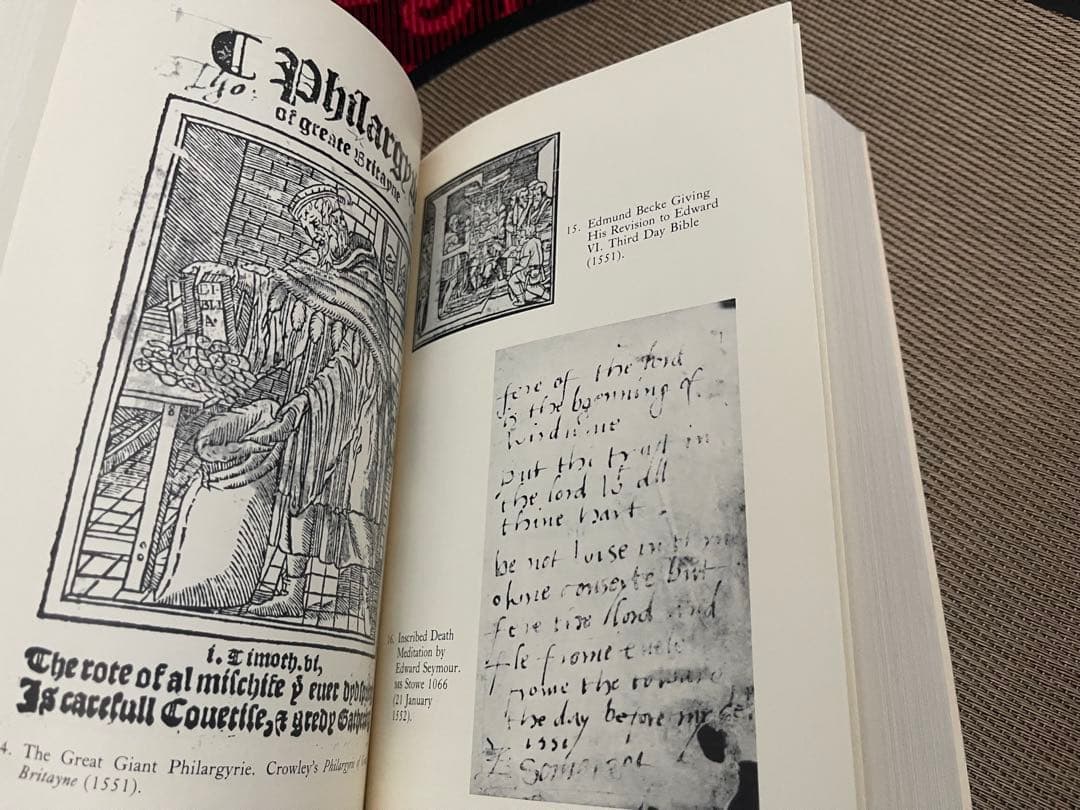 ¶ Philargy
of greate Britayne
i. Timoth. vi,
The rote of al mischife ẏ euer dyd
Is carefull Couetise, & gredy Gath
4. The Great Giant Philargyrie. Crowley's Philargyrie of
Britayne (1551).
15. Edmund Becke Giving
His Revision to Edward
VI. Third Day Bible
(1551).
fere of the lord
is the begenning of
wisdume
put thi trust in
the lord wt all
thine hart.
be not wise in
thyne conseyte but
fere the lord and
fle frome euele
frome the toware
the day before my
1551
E Somerset
16. Inscribed Death
Meditation by
Edward Seymour.
MS Stowe 1066
(21 January
1552).